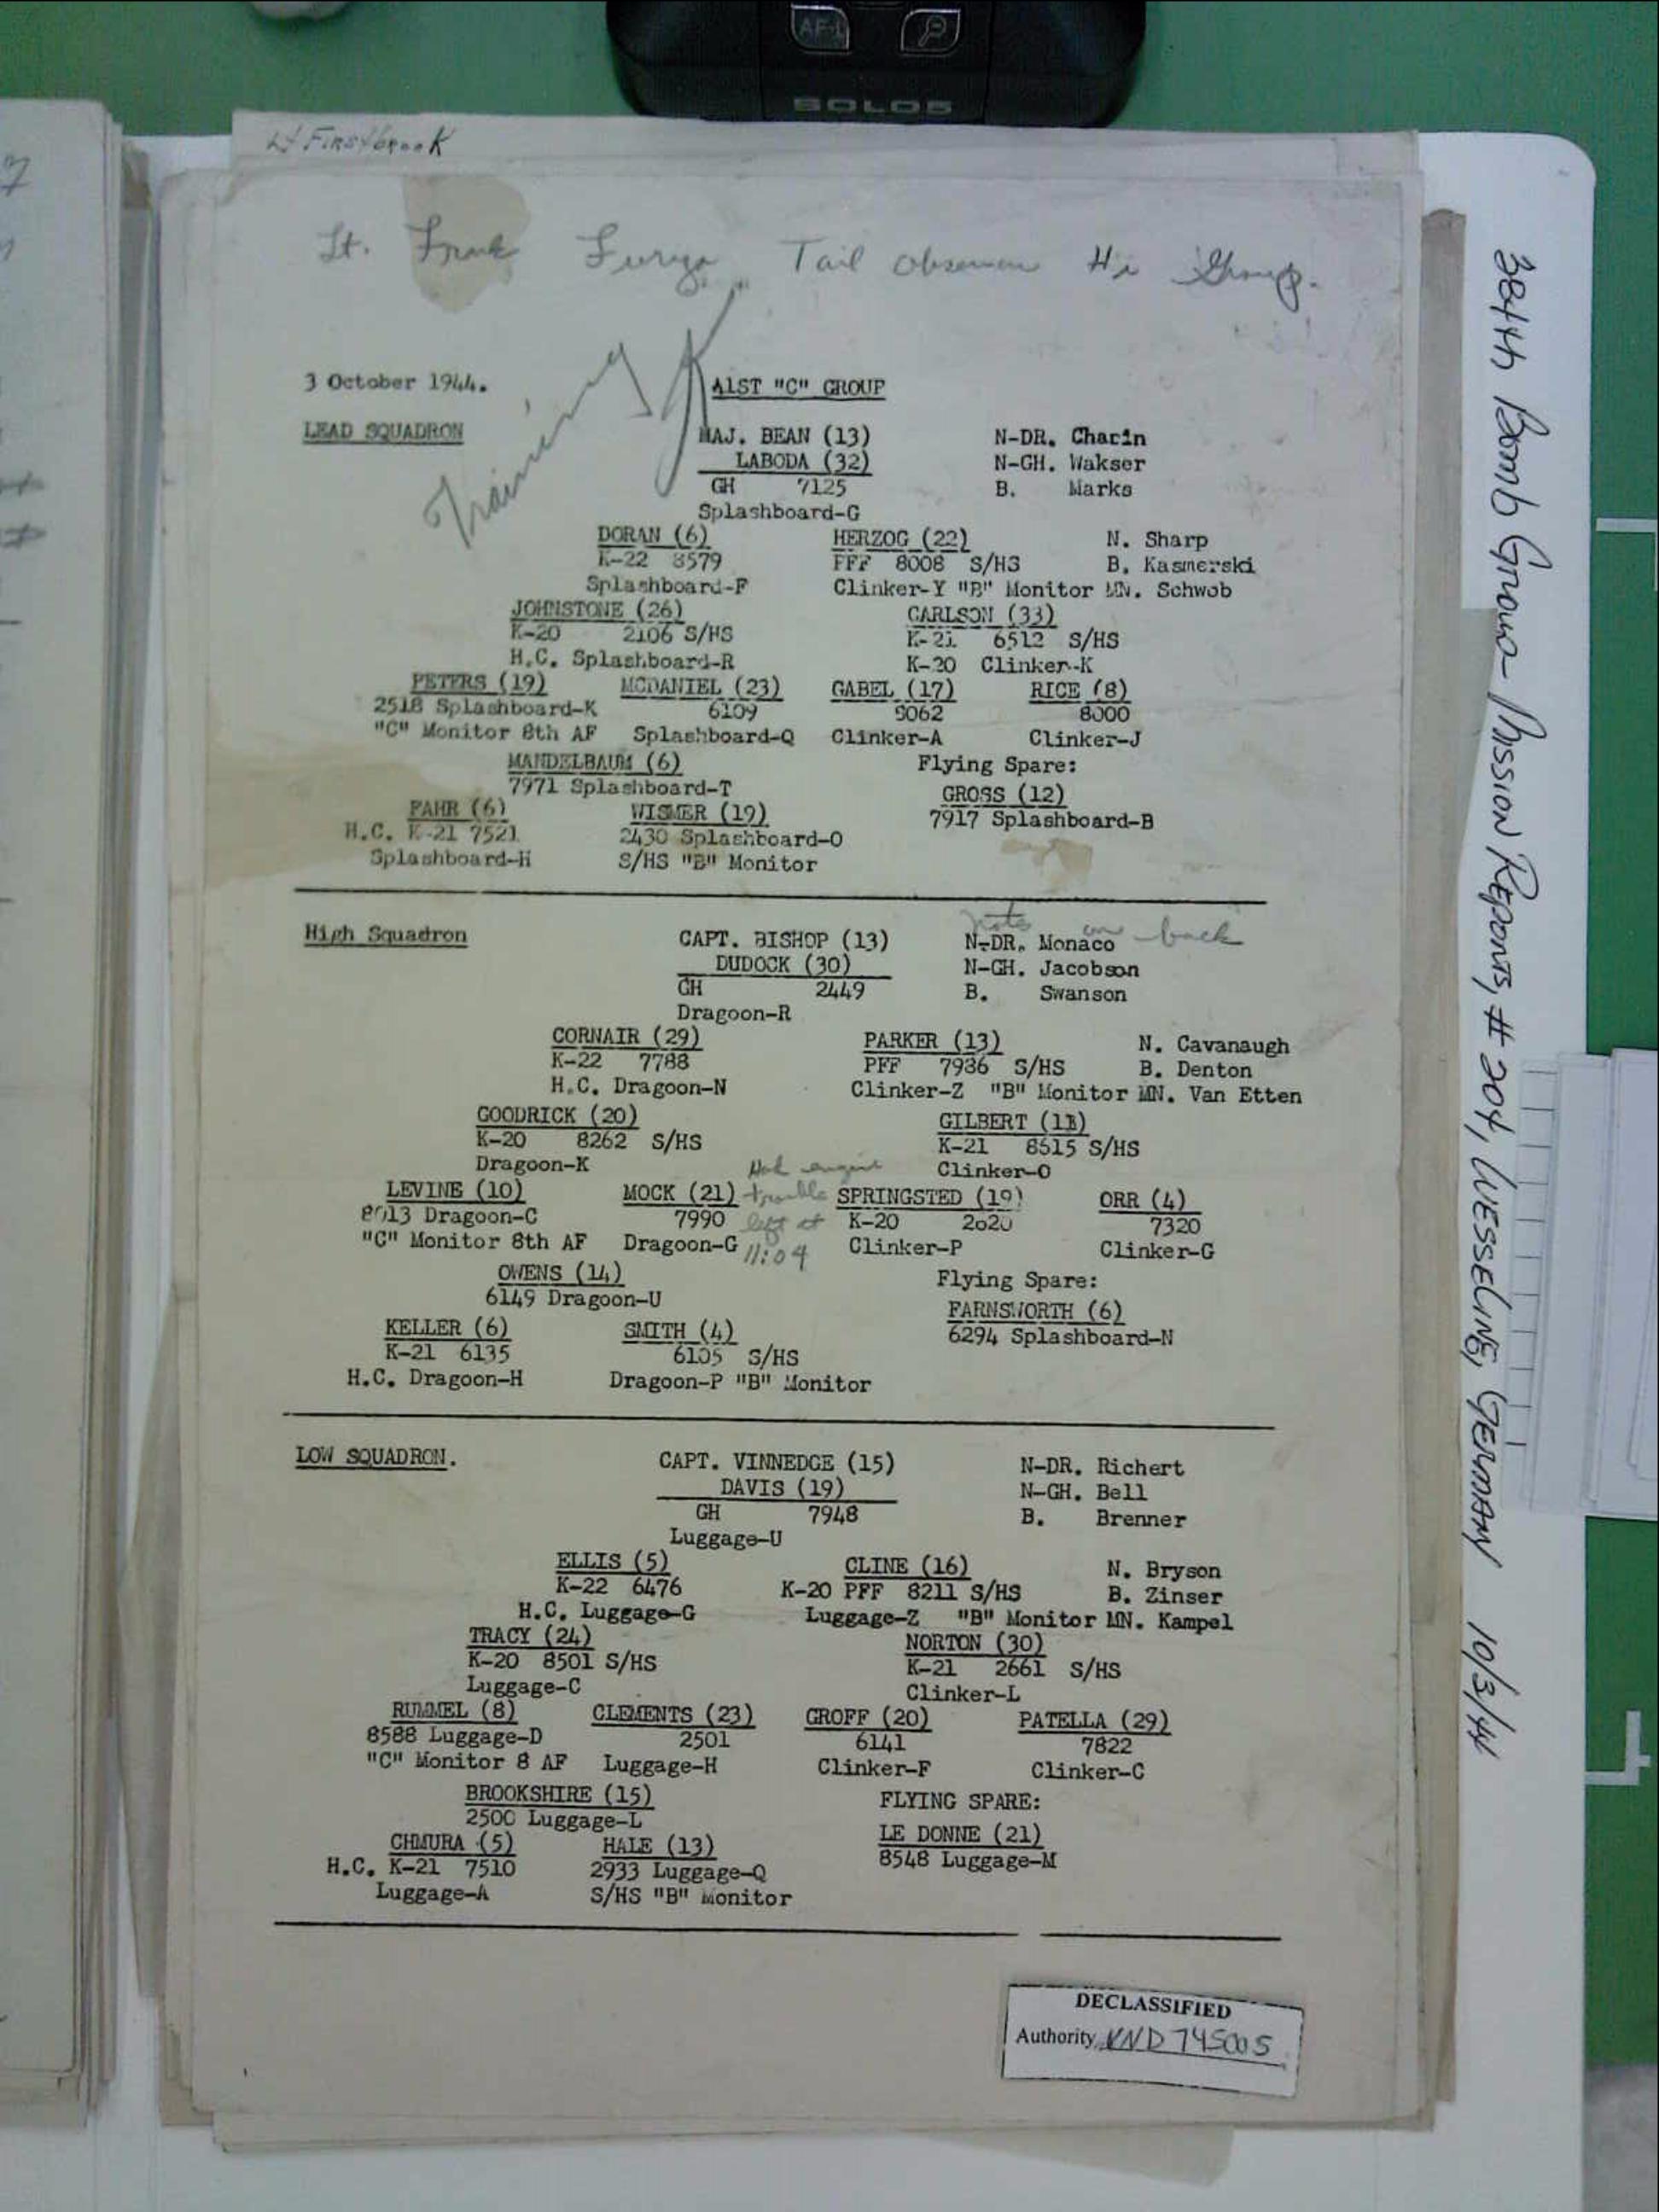 AF-L
SOLO5
Lt Firstbrook
Lt. Frank Tail Observer Hi Group.
Training
3 October 1944. 41ST "C" GROUP
LEAD SQUADRON MAJ. BEAN (13) N-DR. Charin
LABODA (32) N-GH. Wakser
GH 7125 B. Marks
Splashboard-G
DORAN (6) HERZOG (22) N. Sharp
K-22 8579 PFF 8008 S/HS B. Kasmerski
Splashboard-F Clinker-Y "B" Monitor MN. Schwob
JOHNSTONE (26) CARLSON (33)
K-20 2106 S/HS K-21 6512 S/HS
H.C. Splashboard-R K-20 Clinker-K
PETERS (19) MCDANIEL (23) GABEL (17) RICE (8)
2518 Splashboard-K 6109 9062 8000
"C" Monitor 8th AF Splashboard-Q Clinker-A Clinker-J
MANDELBAUM (6) Flying Spare:
7971 Splashboard-T GROSS (12)
FAHR (6) WISMER (19) 7917 Splashboard-B
H.C. K-21 7521 2430 Splashboard-O
Splashboard-H S/HS "B" Monitor
notes on back
High Squadron CAPT. BISHOP (13) N-DR. Monaco
DUDOCK (30) N-GH. Jacobson
GH 2449 B. Swanson
Dragoon-R
CORNAIR (29) PARKER (13) N. Cavanaugh
K-22 7788 PFF 7986 S/HS B. Denton
H.C. Dragoon-N Clinker-Z "B" Monitor MN. Van Etten
GOODRICK (20) GILBERT (13)
K-20 8262 S/HS K-21 8515 S/HS
Dragoon-K Had engine Clinker-O
LEVINE (10) MOCK (21) trouble SPRINGSTED (19) ORR (4)
8013 Dragoon-C 7990 left at K-20 2020 7320
"C" Monitor 8th AF Dragoon-G 11:04 Clinker-P Clinker-G
OWENS (14) Flying Spare:
6149 Dragoon-U FARNSWORTH (6)
KELLER (6) SMITH (4) 6294 Splashboard-N
K-21 6135 6105 S/HS
H.C. Dragoon-H Dragoon-P "B" Monitor
LOW SQUADRON. CAPT. VINNEDGE (15) N-DR. Richert
DAVIS (19) N-GH. Bell
GH 7948 B. Brenner
Luggage-U
ELLIS (5) CLINE (16) N. Bryson
K-22 6476 K-20 PFF 8211 S/HS B. Zinser
H.C. Luggage-G Luggage-Z "B" Monitor MN. Kampel
TRACY (24) NORTON (30)
K-20 8501 S/HS K-21 2661 S/HS
Luggage-C Clinker-L
RUMMEL (8) CLEMENTS (23) GROFF (20) PATELLA (29)
8588 Luggage-D 2501 6141 7822
"C" Monitor 8 AF Luggage-H Clinker-F Clinker-C
BROOKSHIRE (15) FLYING SPARE:
2500 Luggage-L LE DONNE (21)
CHMURA (5) HALE (13) 8548 Luggage-M
H.C. K-21 7510 2933 Luggage-Q
Luggage-A S/HS "B" Monitor
DECLASSIFIED
Authority NND 745005
384th Bomb Group - Mission Reports, # 204, WESSELING, GERMANY 10/3/44